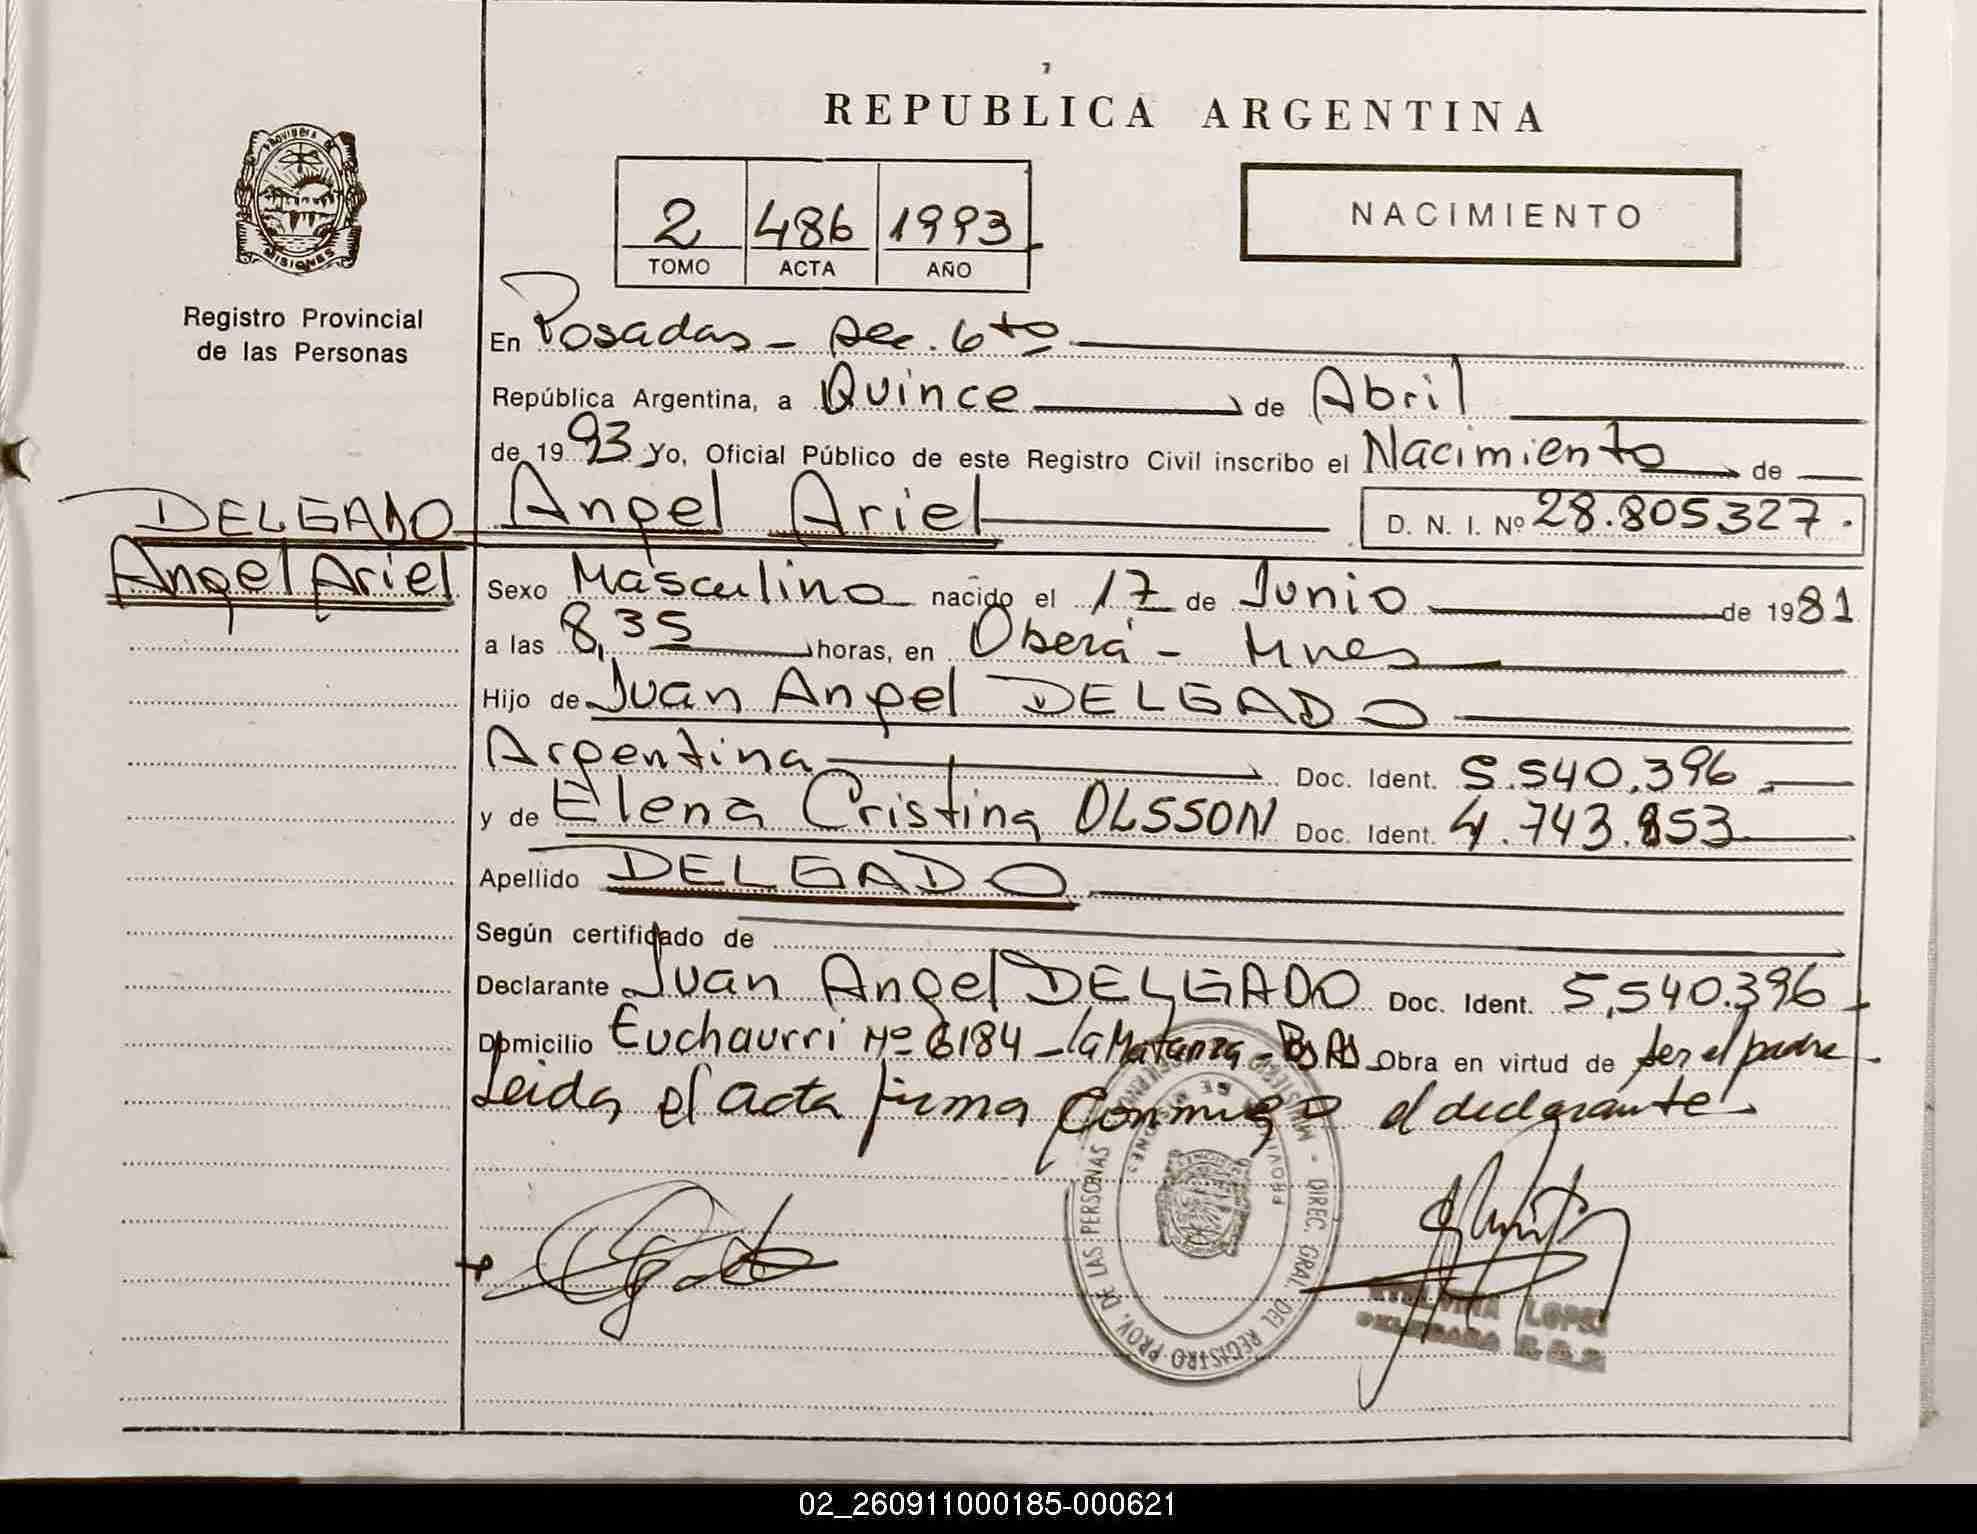 REPUBLICA ARGENTINA
PROVINCIA DE
MISIONES
Registro Provincial
de las Personas
2 486 1993
TOMO ACTA AÑO
NACIMIENTO
En Posadas - Sec. 6to
República Argentina, a Quince de Abril
de 1993 Yo, Oficial Público de este Registro Civil inscribo el Nacimiento de
DELGADO Angel Ariel D. N. I. Nº 28.805327.
Angel Ariel
Sexo Masculino nacido el 17 de Junio de 1981
a las 8,35 horas, en Oberá - Mnes
Hijo de Juan Angel DELGADO
Argentina Doc. Ident. 5.540.396
y de Elena Cristina OLSSON Doc. Ident. 4.743.853
Apellido DELGADO
Según certificado de
Declarante Juan Angel DELGADO Doc. Ident. 5,540.396
Domicilio Nº 6184 - la Matanza - Bs As Obra en virtud de ser el padre
Leida el acta firma conmigo el declarante
DIREC. GRAL. DEL REGISTRO PROV. DE LAS PERSONAS
LOPEZ
02_260911000185-000621